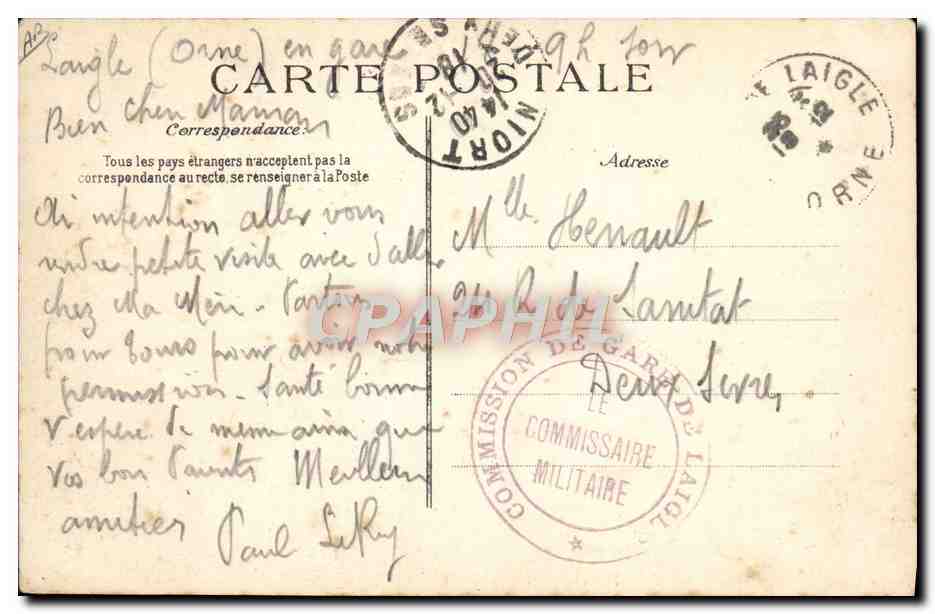 Laigle (Orne) en gare 9h soir
CARTE POSTALE
Bien Chère Maman
Correspondance
Tous les pays étrangers n'acceptent pas la
correspondance au recto, se renseigner à la Poste
Ai intention aller vous
rendre petite visite avec d'aller
chez Ma Mère. Partir
pour Tours pour avoir notre
permission. Santé bonne
J'espère de même ainsi que
vos bons Parents Meilleurs
amitiés
Paul
Adresse
Mlle Henault
R. de Sanitat
Deux Sevres
NIORT
14 40
18-12
DEUX SEVRES
LAIGLE
ORNE
COMMISSION DE GARE DE LAIGLE
LE
COMMISSAIRE
MILITAIRE
CPAPHIL